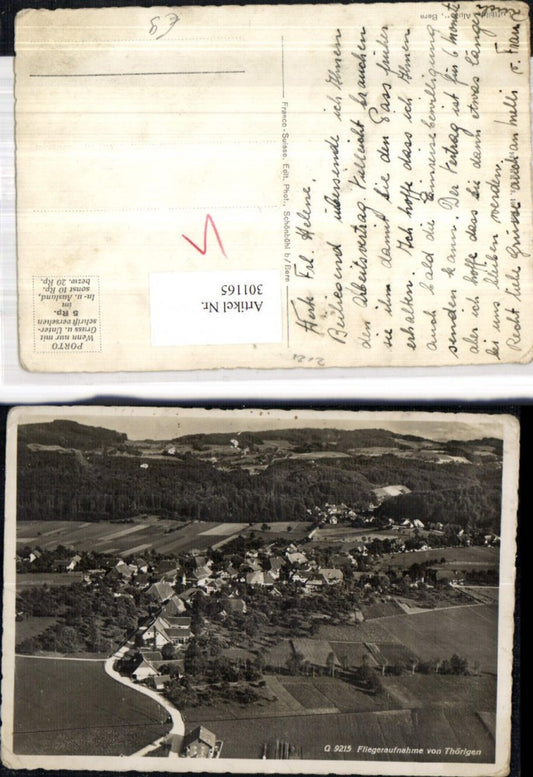 Werte Frl. Helene.
Beiliegend übersende ich Ihnen
den Arbeitsvertrag. Vielleicht brauchen
sie ihn damit Sie den Pass früher
erhalten. Ich hoffe dass ich Ihnen
auch bald die Einreisebewilligung
senden kann. Der Vertrag ist für 6 Monate
aber ich hoffe dass Sie dann etwas länger
bei uns bleiben werden.
Recht liebe Grüsse auch an Melli v. Franz
Franco-Suisse, Edit. Phot., Schönbühl b/Bern
Artikel Nr.
301165
PORTO
Wenn nur mit
Gruss u. Unter-
schrift versehen
5 Rp.
im
In- u. Ausland,
sonst 10 Rp.
bezw. 20 Rp.
G 9215 Fliegeraufnahme von Thörigen